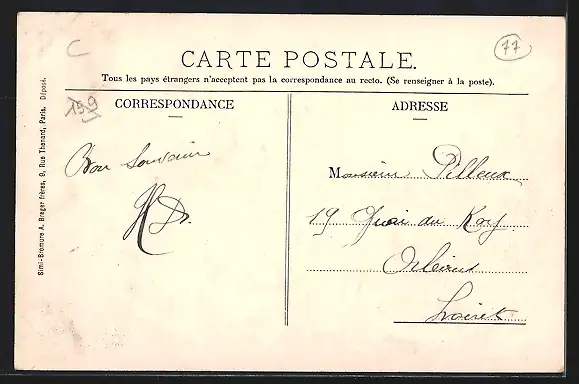 C
77
CARTE POSTALE.
Tous les pays étrangers n'acceptent pas la correspondance au recto. (Se renseigner à la poste).
159
CORRESPONDANCE
ADRESSE
Bon Souvenir
Monsieur Pilleux
19 Quai du Roy
Orléans
Loiret
Simi-Bromure A. Breger frères, 9, Rue Thénard, Paris. Déposé.